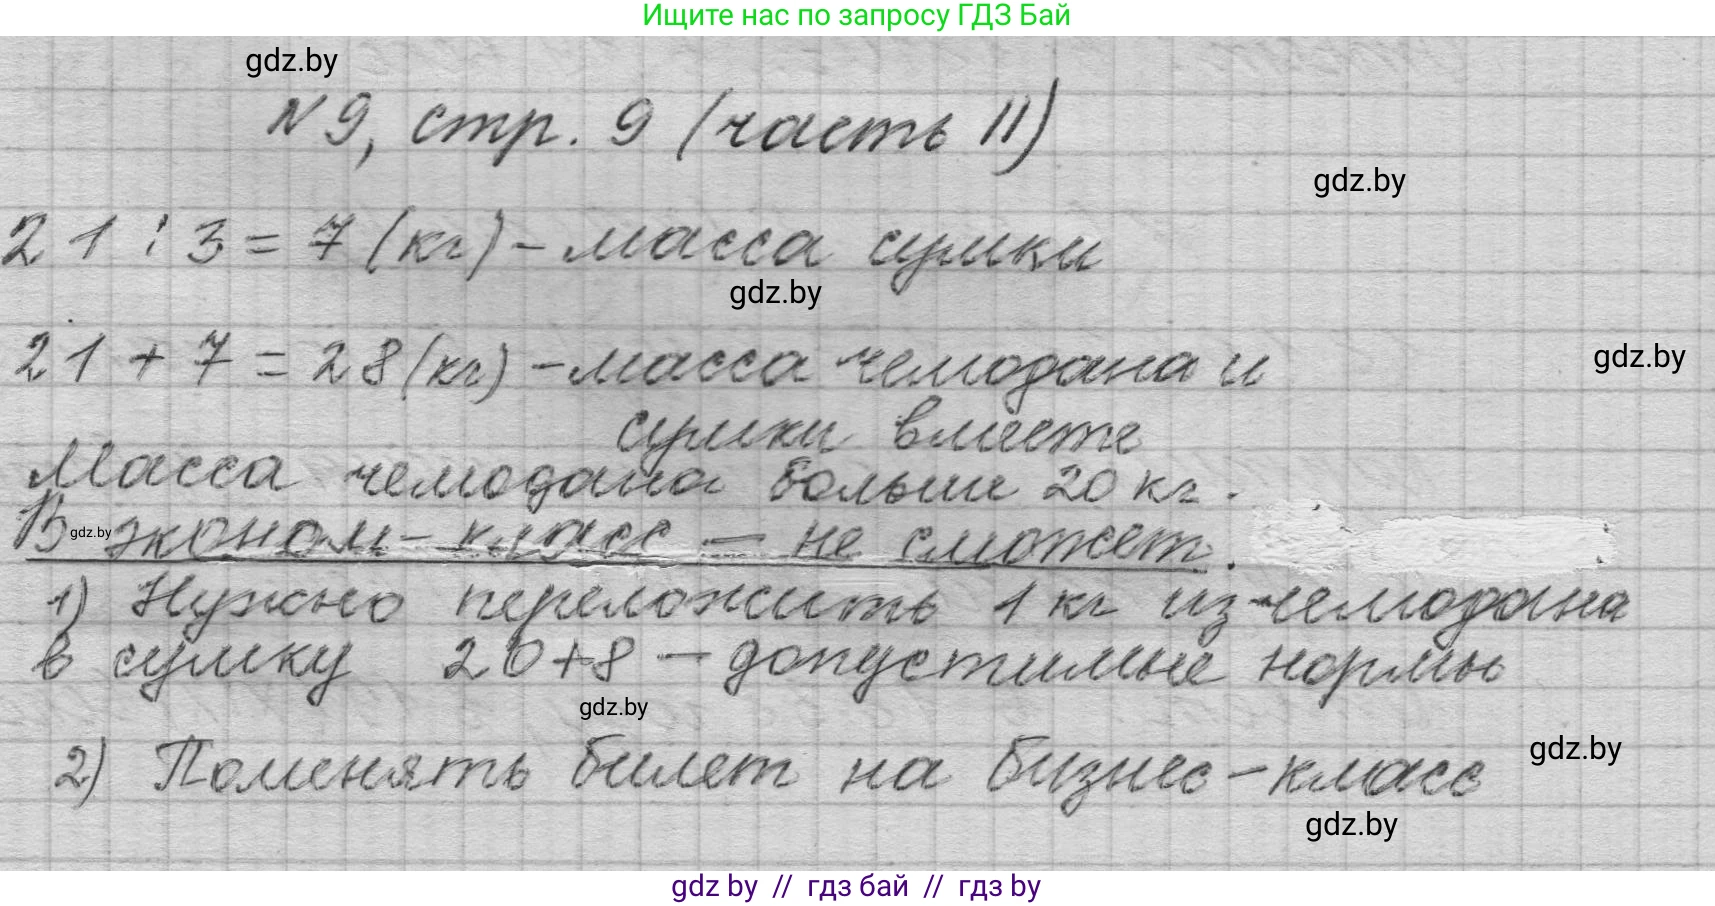 Ищите нас по запросу ГДЗ Бай
gdz.by
№ 9, стр. 9 (часть II)
gdz.by
21 : 3 = 7 (кг) - масса сумки
gdz.by
21 + 7 = 28 (кг) - масса чемодана и
gdz.by
сумки вместе
Масса чемодана больше 20 кг.
В эконом - класс — не сможет.
gdz.by
1) Нужно переложить 1 кг из чемодана
в сумку 20+8 — допустимые нормы
gdz.by
2) Поменять билет на бизнес - класс
gdz.by
gdz.by
gdz by // гдз бай // гдз by